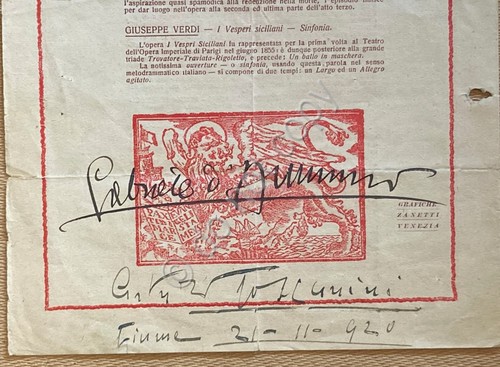 l'aspirazione quasi spasmodica alla redenzione nella morte,
per dar luogo nell'opera alla seconda ed ultima parte dell'atto terzo.
GIUSEPPE VERDI — I Vesperi siciliani — Sinfonia.
L'opera I Vespri Siciliani fu rappresentata per la prima volta al Teatro
dell'Opera Imperiale di Parigi nel giugno 1855: è dunque posteriore alla grande
triade Trovatore-Traviata-Rigoletto, e precede: Un ballo in maschera.
La notissima ouverture — o sinfonia, usando questa parola nel senso
melodrammatico italiano — si compone di due tempi: un Largo ed un Allegro
agitato.
Gabriele d'Annunzio
GRAFICHE
ZANETTI
VENEZIA
Arturo Toscanini
Fiume 21-11-920